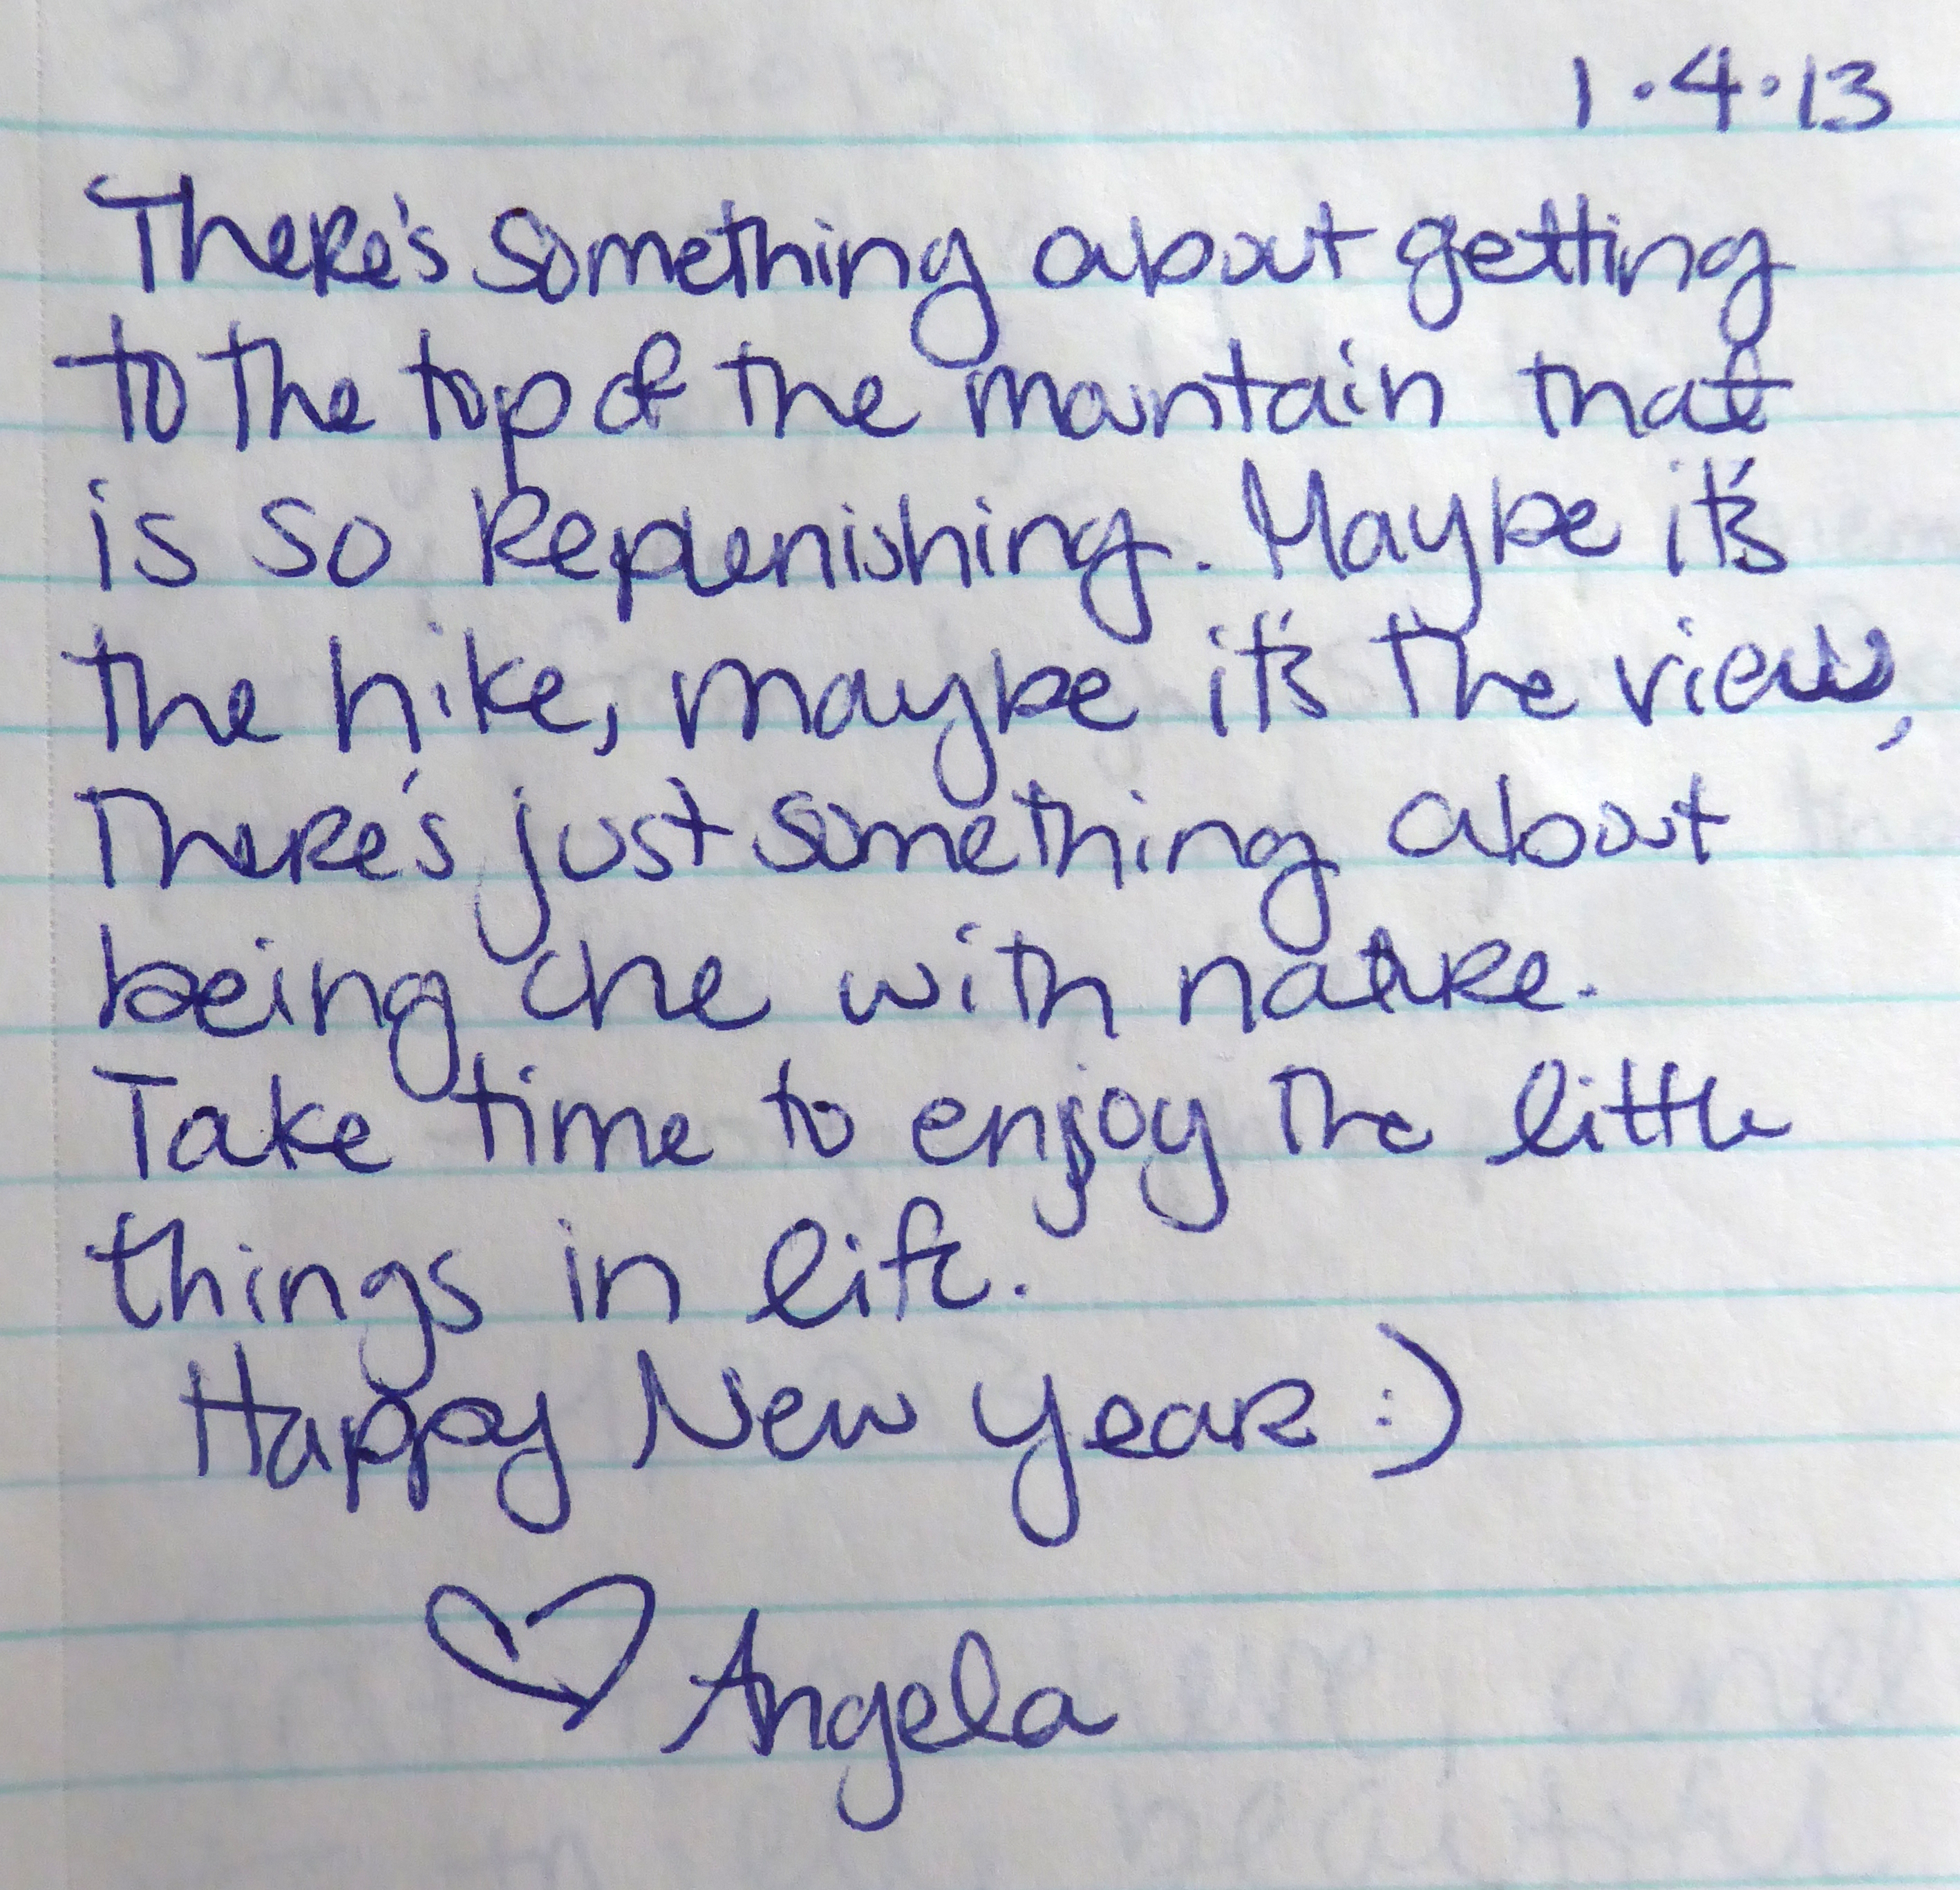 1.4.13
There's something about getting
to the top of the mountain that
is so replenishing. Maybe it's
the hike, maybe it's the view,
There's just something about
being one with nature.
Take time to enjoy the little
things in life.
Happy New Year :)
♡ Angela